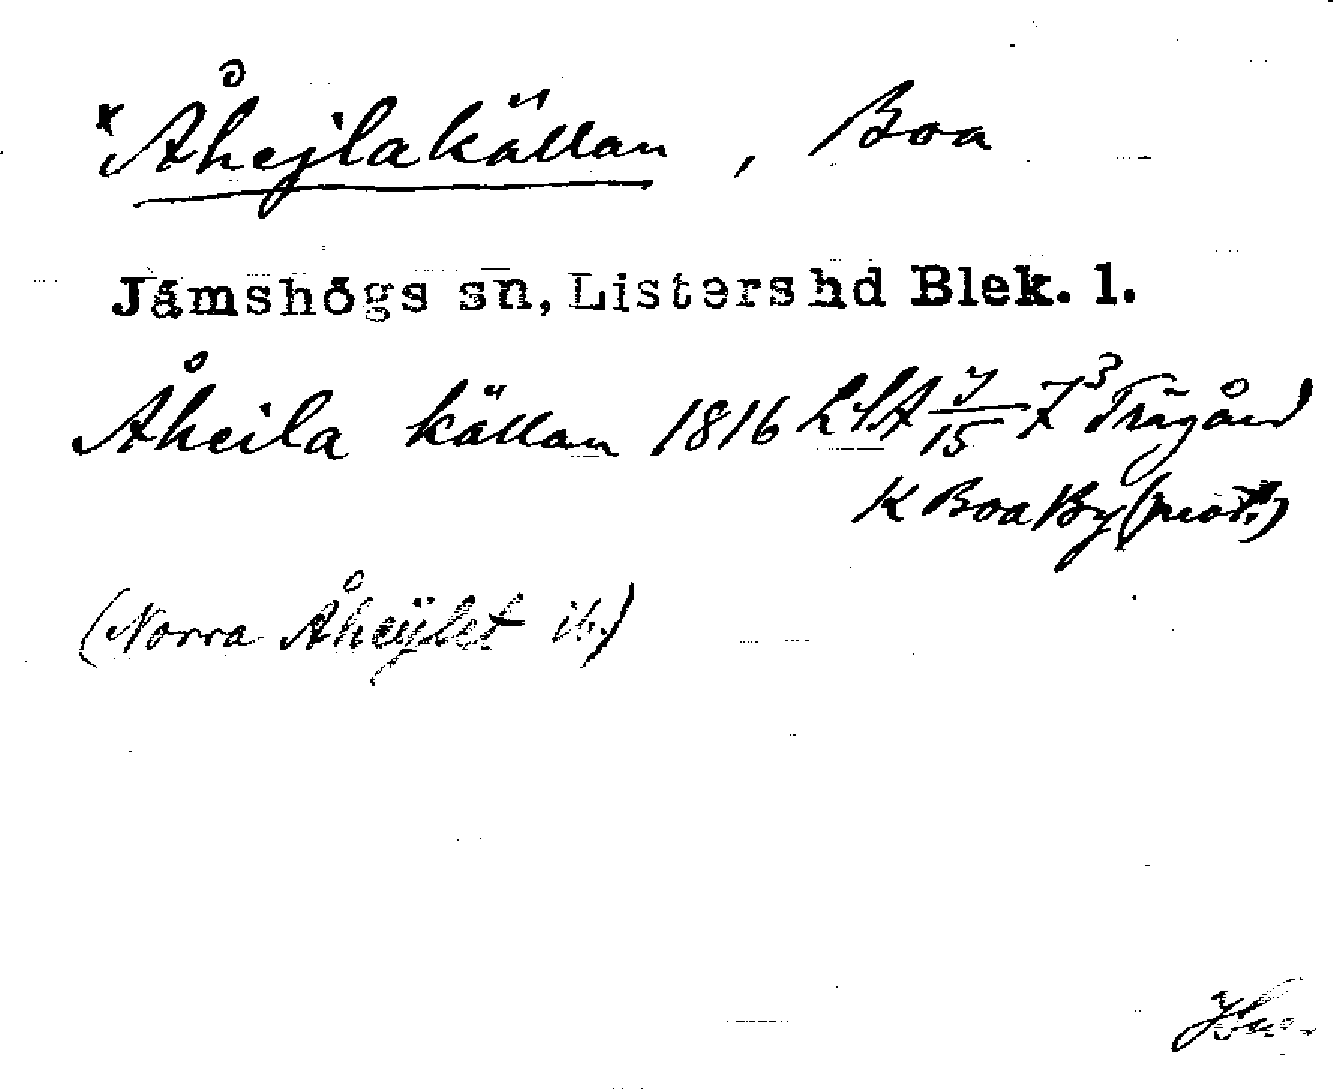 *Åhejlakällan, Boa
Jämshögs sn, Listers hd Blek. l.
Åheila källan 1816 LSA J/15 73 Trägård
K Boa By (prot.)
(Norra Åheÿlet ib.)